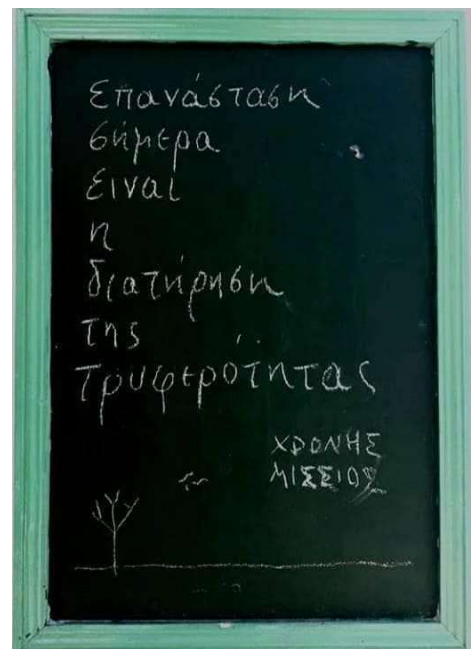 επανάσταση
σήμερα
ειναι
η
διατήρηση
της
τρυφερότητας
ΧΡΟΝΗΣ
ΜΙΣΣΙΟΣ